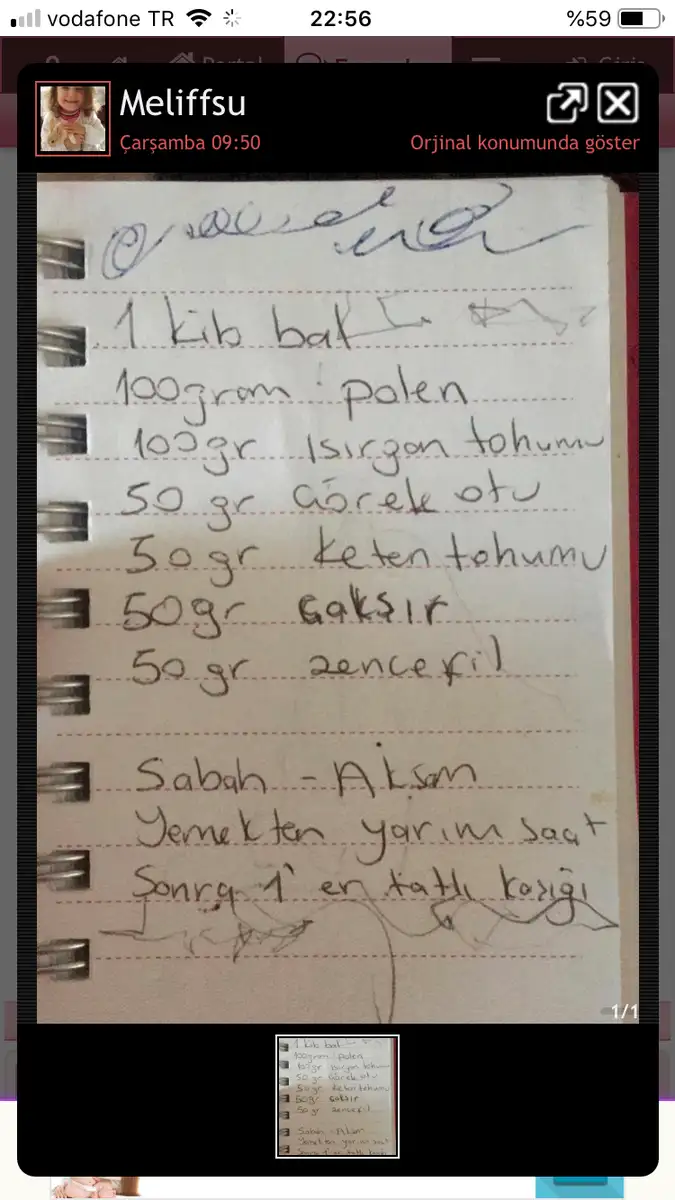 vodafone TR 22:56 %59
Portal Giriş
Meliffsu
Çarşamba 09:50 Orjinal konumunda göster
1 kib bal
100gram polen
100gr Isırgan tohumu
50 gr Çörek otu
50gr keten tohumu
50gr Çakşır
50 gr zencefil
Sabah - Akşam
Yemekten yarım saat
Sonra 1' er tatlı kaşığı
1/1